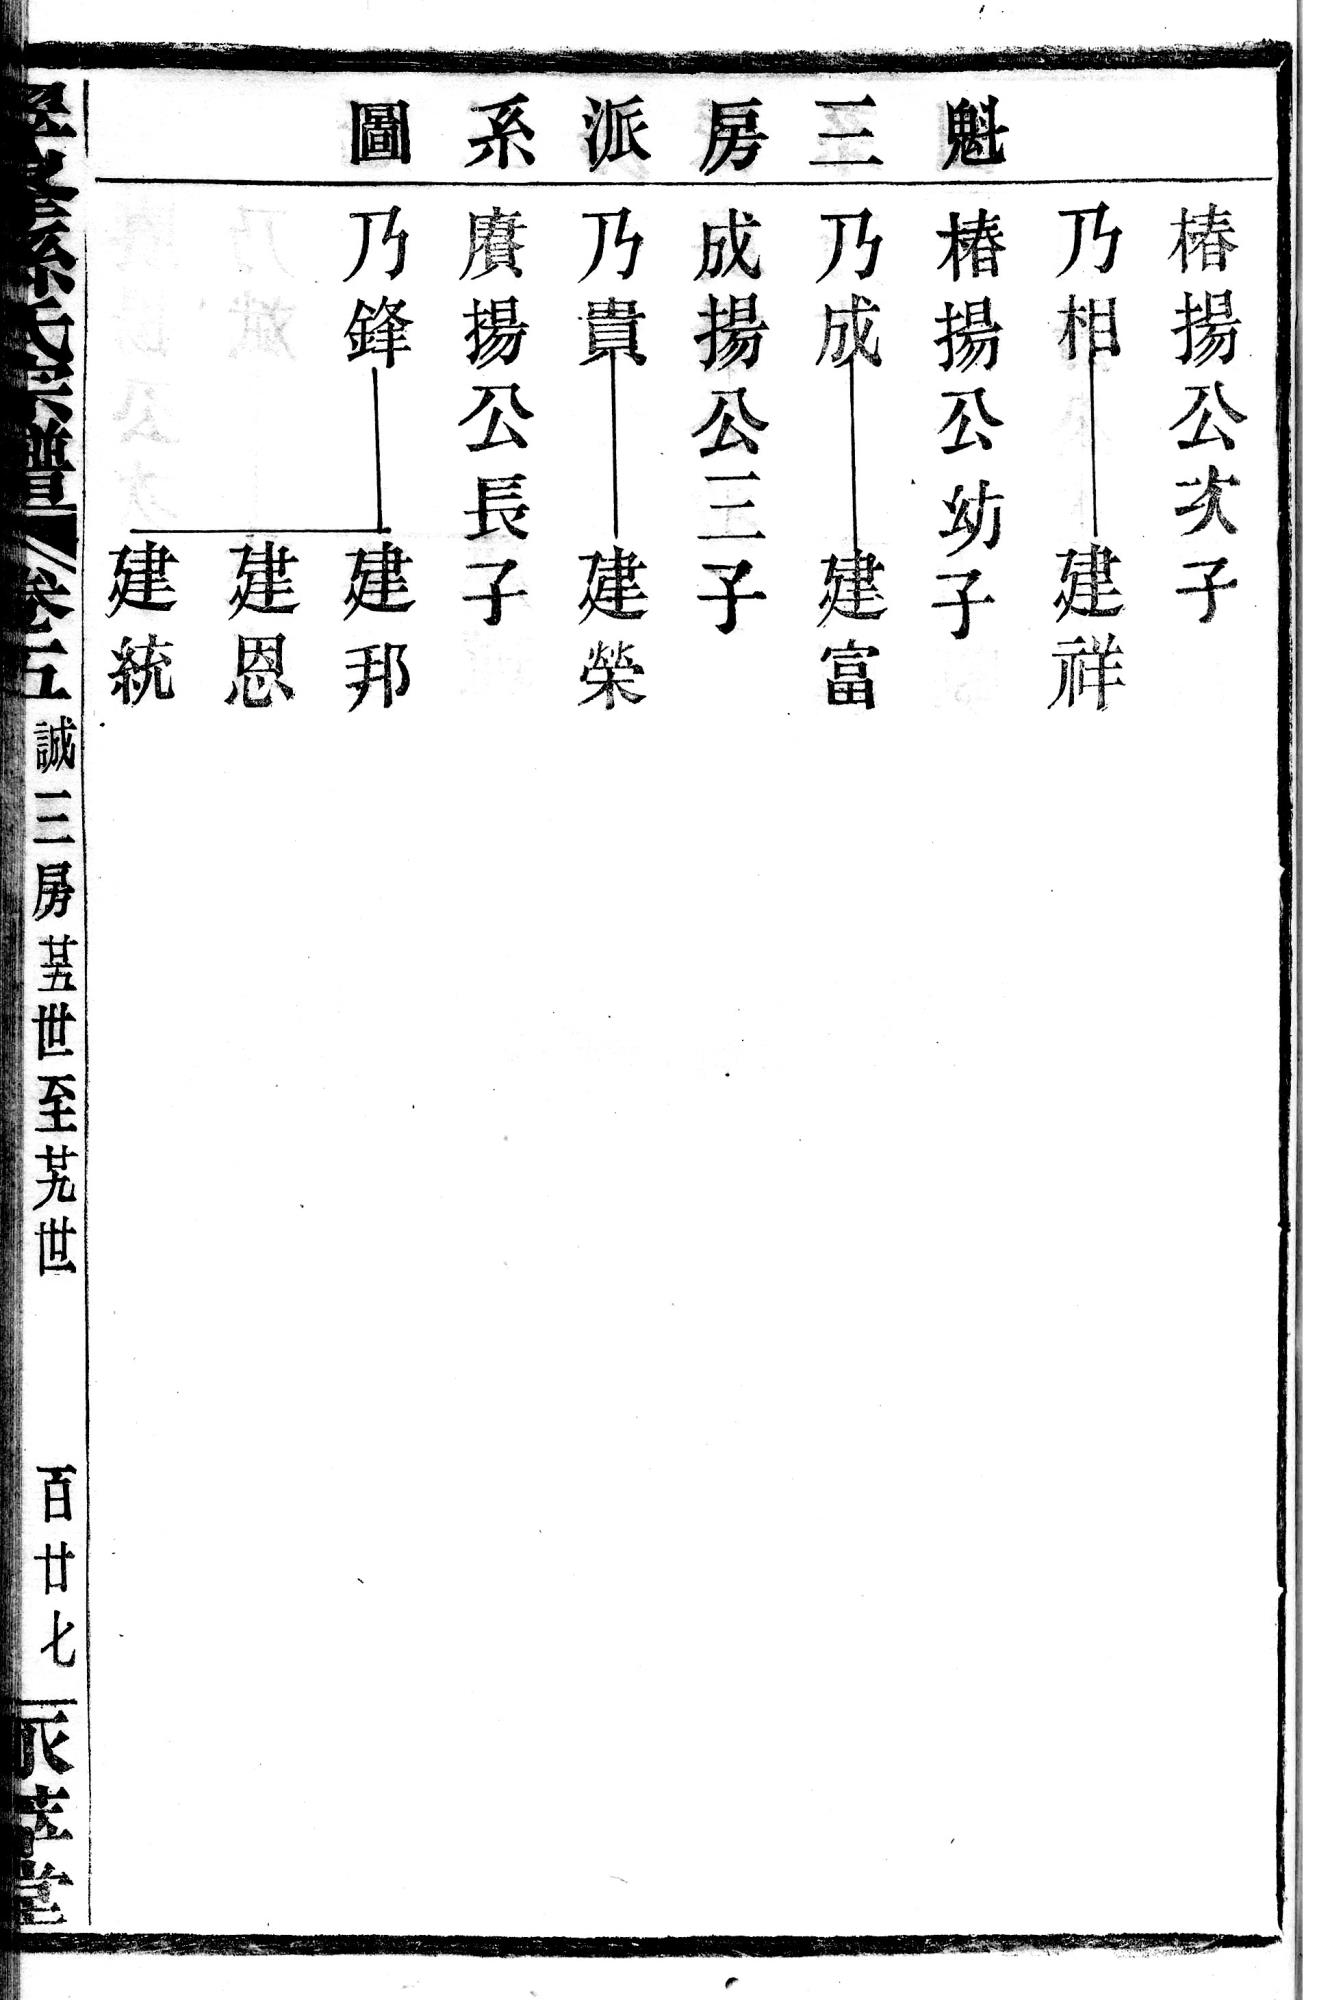 魁三房派系圖
椿揚公次子
乃相 建祥
椿揚公幼子
乃成 建富
成揚公三子
乃貴 建榮
賡揚公長子
乃鋒 建邦
建恩
建統
氏宗譜 卷五 誠三房 廿五世至廿九世 百廿七 堂